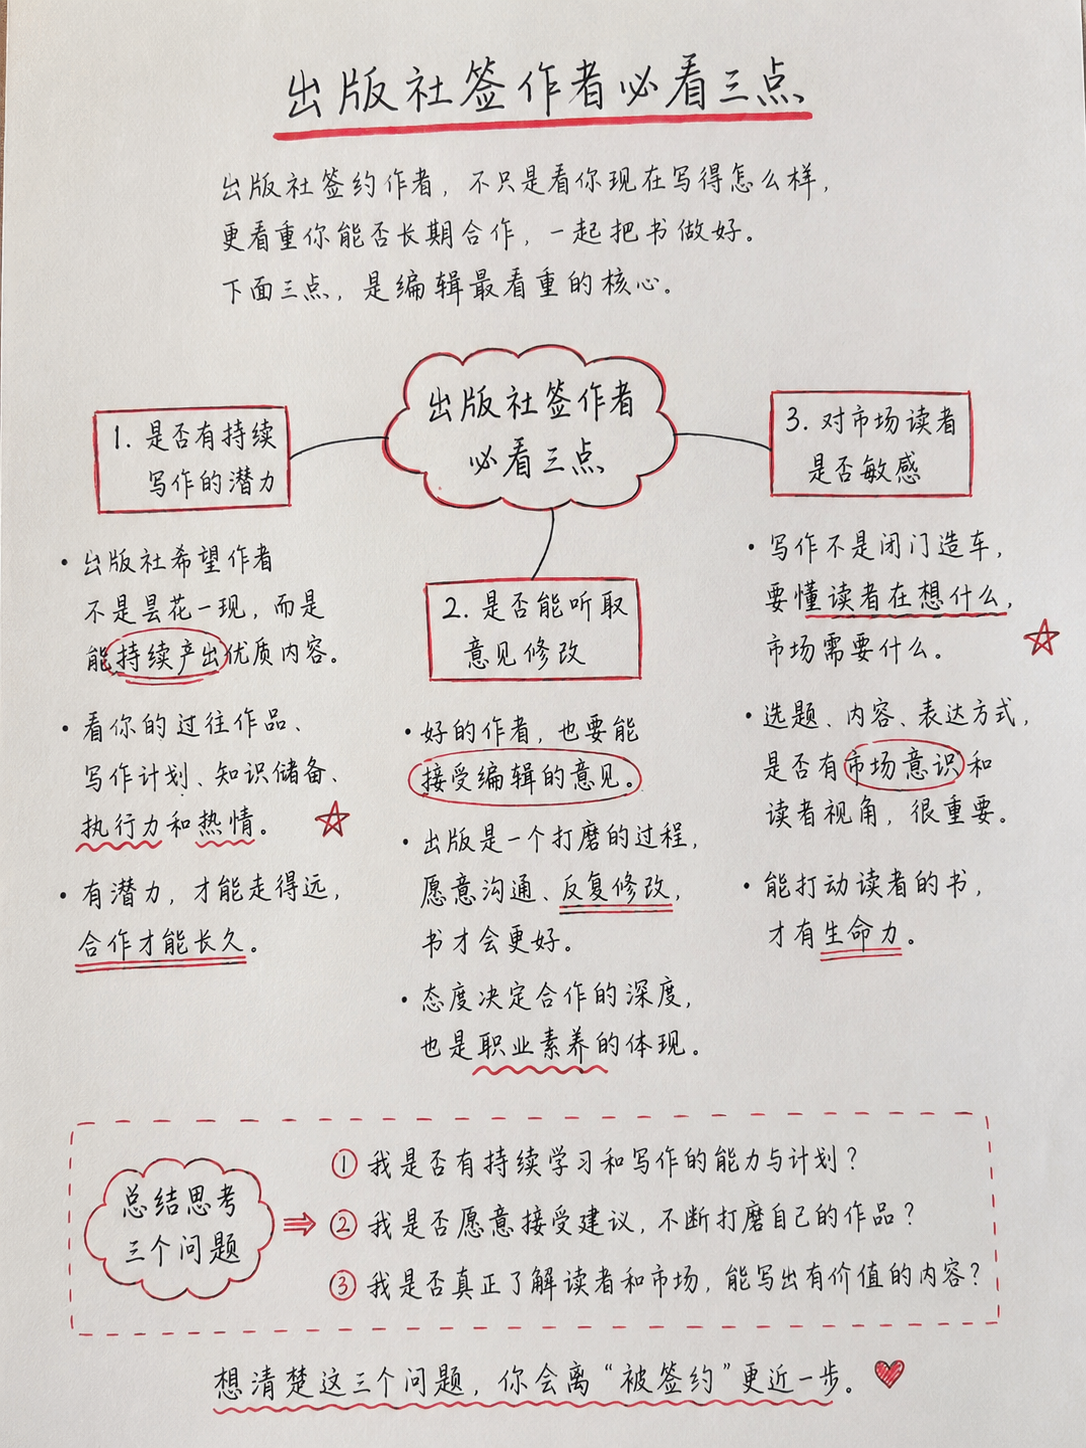 出版社签作者必看三点
出版社签约作者，不只是看你现在写得怎么样，
更看重你能否长期合作，一起把书做好。
下面三点，是编辑最看重的核心。
出版社签作者
必看三点
1. 是否有持续
写作的潜力
• 出版社希望作者
不是昙花一现，而是
能持续产出优质内容。
• 看你的过往作品、
写作计划、知识储备、
执行力和热情。
• 有潜力，才能走得远，
合作才能长久。
2. 是否能听取
意见修改
• 好的作者，也要能
接受编辑的意见。
• 出版是一个打磨的过程，
愿意沟通、反复修改，
书才会更好。
• 态度决定合作的深度，
也是职业素养的体现。
3. 对市场读者
是否敏感
• 写作不是闭门造车，
要懂读者在想什么，
市场需要什么。
• 选题、内容、表达方式，
是否有市场意识和
读者视角，很重要。
• 能打动读者的书，
才有生命力。
总结思考
三个问题
① 我是否有持续学习和写作的能力与计划？
② 我是否愿意接受建议，不断打磨自己的作品？
③ 我是否真正了解读者和市场，能写出有价值的内容？
想清楚这三个问题，你会离“被签约”更近一步。